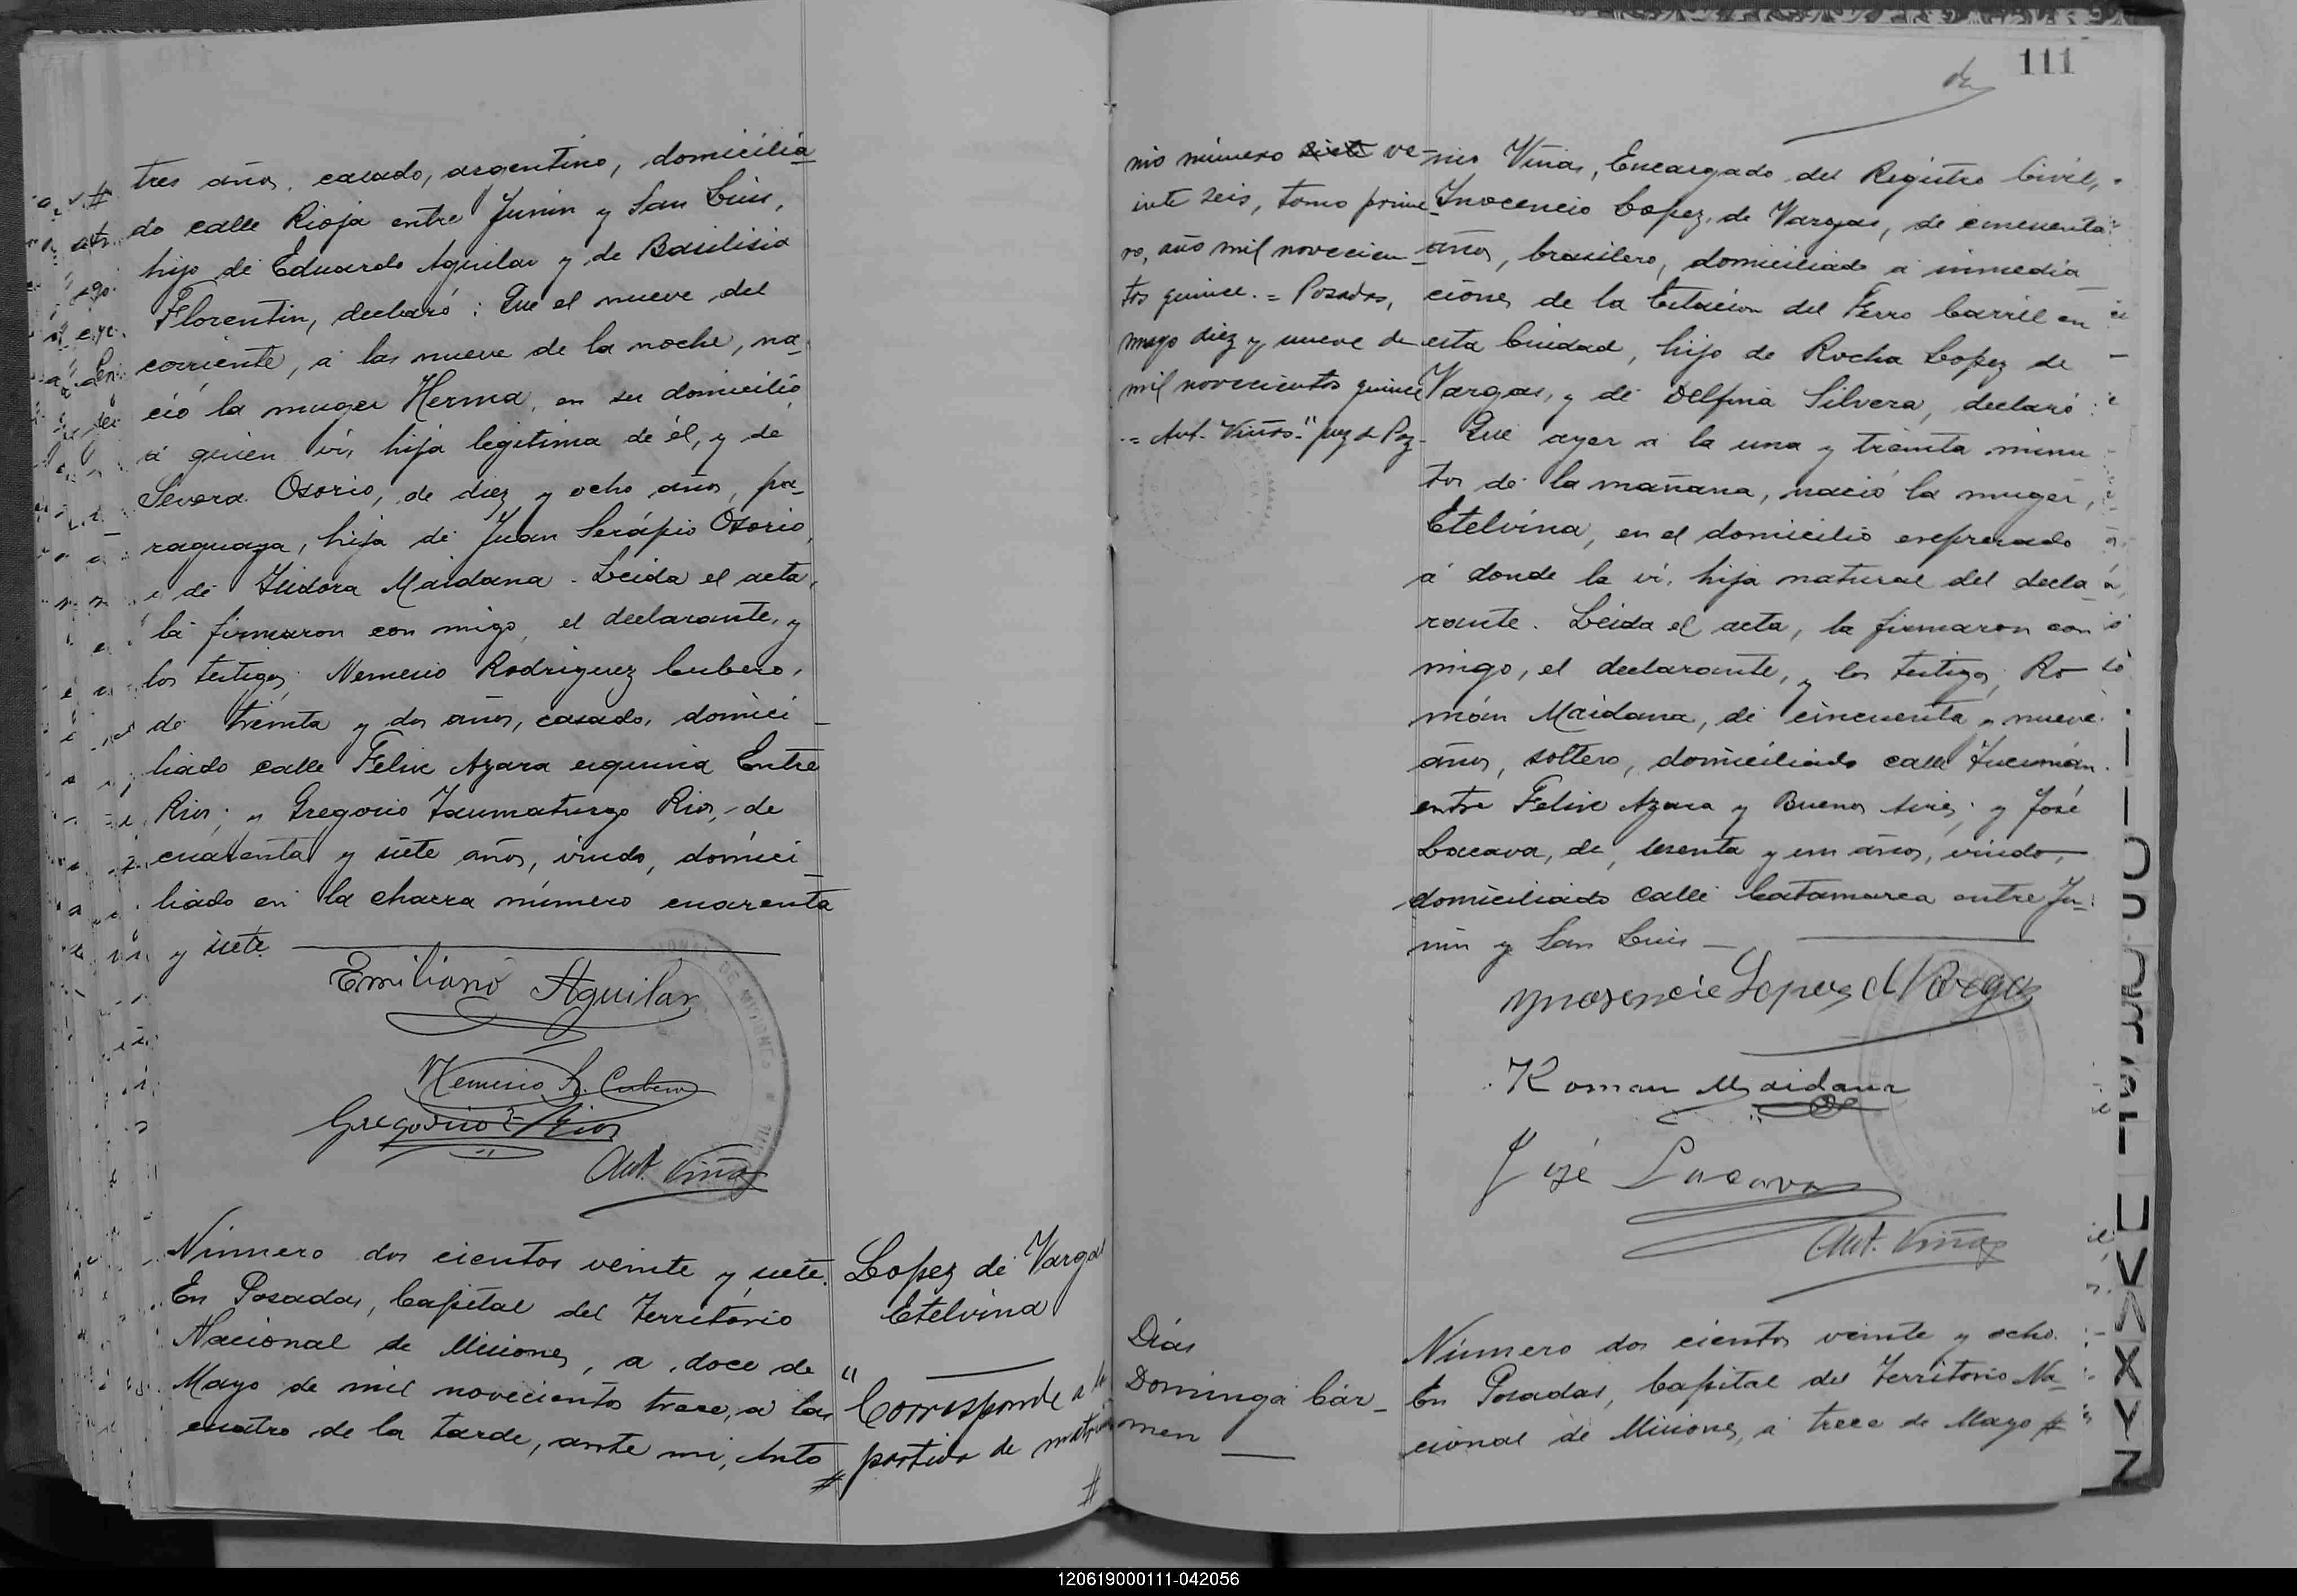 tres años, casado, argentino, domicilia
do calle Rioja entre Junin y San Luis,
hijo de Eduardo Aguilar y de Basilisia
Florentin, declaró: Que el nueve del
corriente, a las nueve de la noche, na
ció la muger Herma, en su domicilio
á quien ví, hija legitima de él, y de
Severa Osorio, de diez y ocho años, pa
raguaya, hija de Juan Serápio Osorio,
i de Isidora Maidana. Leida el acta,
la firmaron con migo, el declarante, y
los testigos; Nemesio Rodriguez Cubero,
de treinta y dos años, casado, domici
liado calle Felix Azara esquina Entre
Rios; y Gregorio Taumaturgo Rios, de
cuarenta y siete años, viudo, domici
liado en la chacra número cuarenta
y siete.
Emiliano Aguilar
Nemesio R. Cubero
Gregorio T Rios
Ant. Viñas
Número dos cientos veinte y siete.
En Posadas, Capital del Territorio
Nacional de Misiones, a doce de
Mayo de mil novecientos trece, a las
cuatro de la tarde, ante mi, Anto
Lopez de Vargas
Etelvina
"Corresponde a la
partida de matrimo
#
111
nio número siete ve
inte seis, tomo prime
ro, año mil novecien
tos quince. = Posadas,
mayo diez y nueve de
mil novecientos quince
= Ant. Viñas." Juez de Paz
nio Viñas, Encargado del Registro Civil,
Inocencio Lopez de Vargas, de cincuenta
años, brasilero, domiciliado a inmedia
ciones de la Estacion del Ferro Carril en
esta Ciudad, hijo de Rocha Lopez de
Vargas, y de Delfina Silvera, declaró:
Que ayer a la una y treinta minu
tos de la mañana, nació la muger,
Etelvina, en el domicilio expresado
á donde la ví, hija natural del decla
rante. Leida el acta, la firmaron con
migo, el declarante, y los testigos, Ro
mán Maidana, de cincuenta y nueve
años, soltero, domiciliado calle Tucumán
entre Felix Azara y Buenos Aires; y José
Lacava, de sesenta y un años, viudo,
domiciliado calle Catamarca entre Ju
nin y San Luis
Ynosencio Lopes de Vargas
Roman Maidana
José Lacava
Ant. Viñas
Días
Dominga Cár
men
Número dos cientos veinte y ocho.
En Posadas, Capital del Territorio Na
cional de Misiones, á trece de Mayo #
120619000111-042056